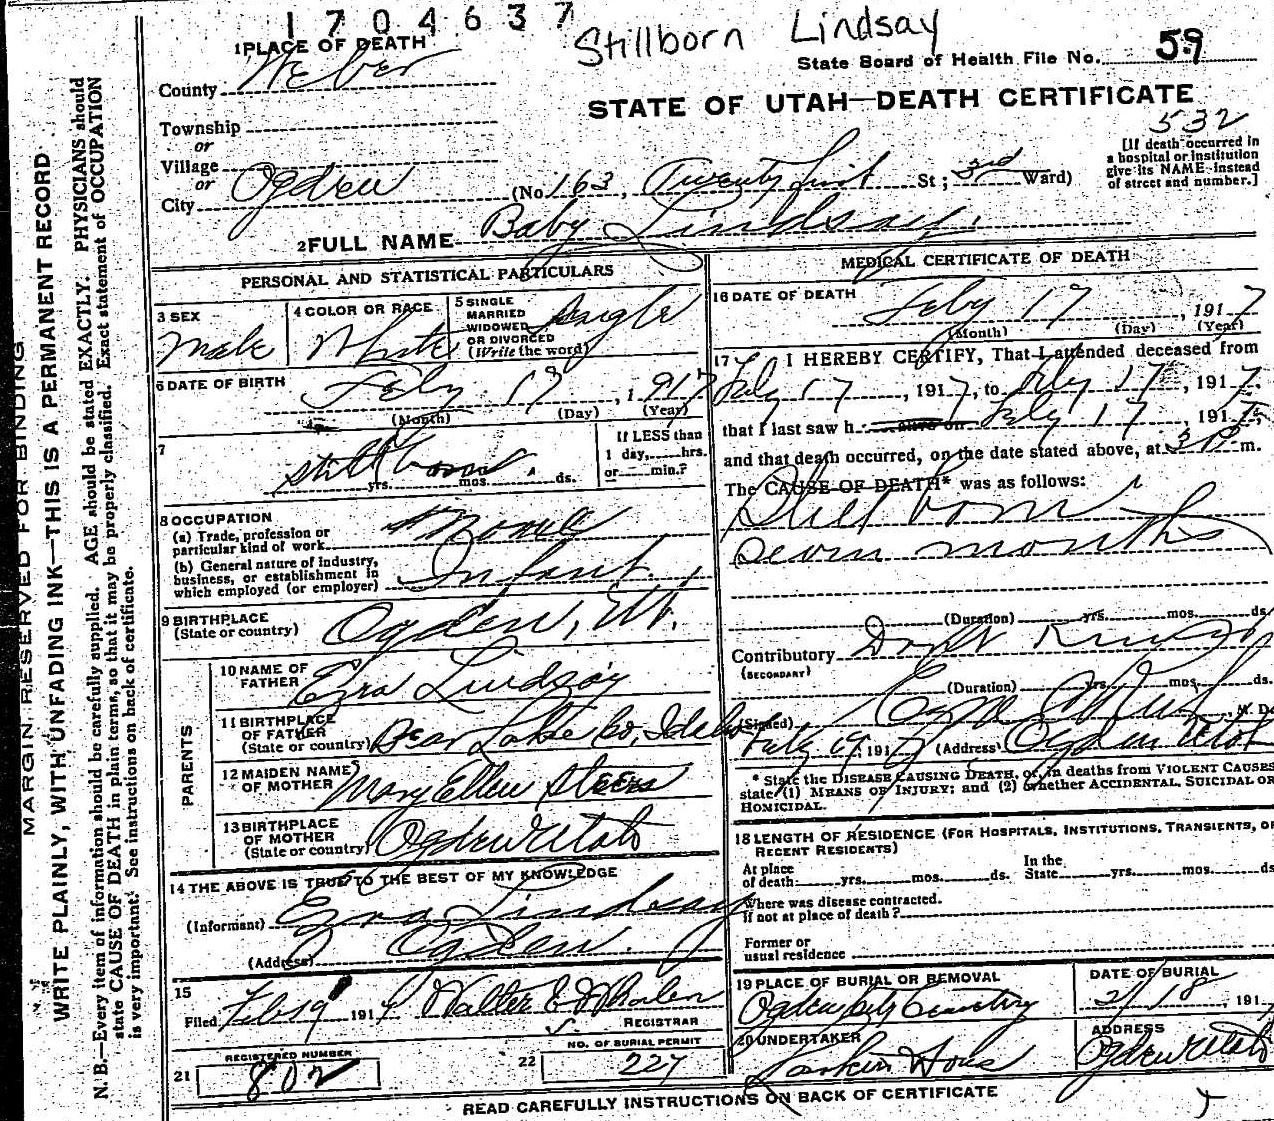 1704637
Stillborn Lindsay
State Board of Health File No. 59
STATE OF UTAH—DEATH CERTIFICATE
532
1 PLACE OF DEATH
County Weber
Township
or
Village
or
City Ogden (No 163, Twenty First St; 3rd Ward)
[If death occurred in
a hospital or institution
give its NAME instead
of street and number.]
2 FULL NAME Baby Lindsay.
PERSONAL AND STATISTICAL PARTICULARS
3 SEX
Male
4 COLOR OR RACE
White
5 SINGLE
MARRIED
WIDOWED
OR DIVORCED
(Write the word)
Single
6 DATE OF BIRTH
Feby 17, 1917
(Month) (Day) (Year)
7
still born.
yrs. mos. ds.
If LESS than
1 day, hrs.
or min.?
8 OCCUPATION
(a) Trade, profession or
particular kind of work None
(b) General nature of industry,
business, or establishment in
which employed (or employer) Infant.
9 BIRTHPLACE
(State or country) Ogden, Ut.
PARENTS
10 NAME OF
FATHER Ezra Lindsay
11 BIRTHPLACE
OF FATHER
(State or country) Bear Lake Co, Idaho
12 MAIDEN NAME
OF MOTHER Mary Ellen Steers
13 BIRTHPLACE
OF MOTHER
(State or country) Ogden Utah
14 THE ABOVE IS TRUE TO THE BEST OF MY KNOWLEDGE
(Informant) Ezra Lindsay
(Address) Ogden.
15
Filed Feb 19 1917 Walter E Whalen
REGISTRAR
REGISTERED NUMBER
21 802
NO. OF BURIAL PERMIT
22 227
MEDICAL CERTIFICATE OF DEATH
16 DATE OF DEATH
Feby 17, 1917
(Month) (Day) (Year)
17 I HEREBY CERTIFY, That I attended deceased from
Feby 17, 1917, to Feby 17, 1917,
that I last saw h alive on Feby 17, 1917,
and that death occurred, on the date stated above, at 3 P. m.
The CAUSE OF DEATH* was as follows:
Still born
seven months
(Duration) yrs. mos. ds.
Contributory Don't Know
(SECONDARY)
(Duration) yrs. mos. ds.
(Signed) M. D.
Feby 19, 1917 (Address) Ogden Utah
* State the DISEASE CAUSING DEATH, or, in deaths from VIOLENT CAUSES
state (1) MEANS OF INJURY; and (2) whether ACCIDENTAL, SUICIDAL OR
HOMICIDAL.
18 LENGTH OF RESIDENCE (FOR HOSPITALS, INSTITUTIONS, TRANSIENTS, OR
RECENT RESIDENTS)
At place
of death yrs. mos. ds.
In the
State yrs. mos. ds
Where was disease contracted.
if not at place of death?
Former or
usual residence
19 PLACE OF BURIAL OR REMOVAL
Ogden City Cemetery
DATE OF BURIAL
2/18, 191
20 UNDERTAKER
Larkin & Sons
ADDRESS
Ogden Utah
READ CAREFULLY INSTRUCTIONS ON BACK OF CERTIFICATE
MARGIN RESERVED FOR BINDING
WRITE PLAINLY, WITH UNFADING INK—THIS IS A PERMANENT RECORD
N. B.—Every item of information should be carefully supplied. AGE should be stated EXACTLY. PHYSICIANS should
state CAUSE OF DEATH in plain terms, so that it may be properly classified. Exact statement of OCCUPATION
is very important. See instructions on back of certificate.